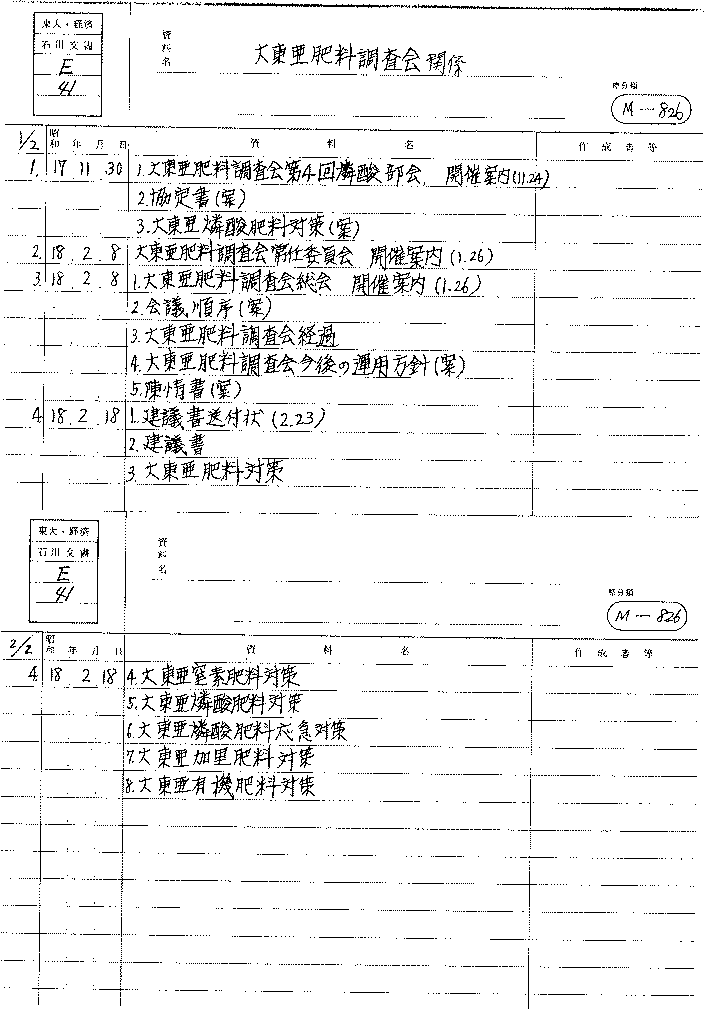 東大・経済
石川文書
E
41
資料名
大東亜肥料調査会関係
原分類
M-826
1/2 昭和 年 月 日 資料名 作成書等
1. 17 11 30 1.大東亜肥料調査会第4回燐酸部会 開催案内(11.24)
2.協定書(案)
3.大東亜燐酸肥料対策(案)
2. 18 2 8 大東亜肥料調査会常任委員会 開催案内(1.26)
3. 18 2 8 1.大東亜肥料調査会総会 開催案内(1.26)
2.会議順序(案)
3.大東亜肥料調査会経過
4.大東亜肥料調査会今後の運用方針(案)
5.陳情書(案)
4. 18 2 18 1.建議書送付状(2.23)
2.建議書
3.大東亜肥料対策
東大・経済
石川文書
E
41
資料名
原分類
M-826
2/2 昭和 年 月 日 資料名 作成書等
4. 18 2 18 4.大東亜窒素肥料対策
5.大東亜燐酸肥料対策
6.大東亜燐酸肥料応急対策
7.大東亜加里肥料対策
8.大東亜有機肥料対策